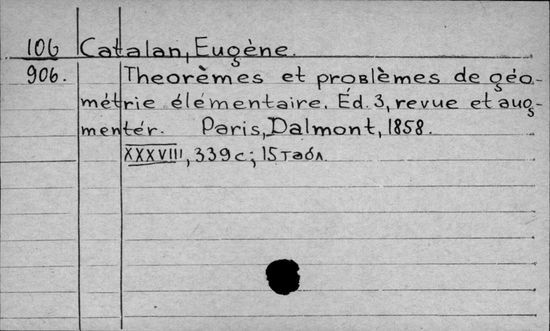 106 Catalan, Eugène.
906. Theorèmes et problèmes de géo-
métrie élémentaire. Éd. 3, revue et aug-
mentér. Paris, Dalmont, 1858.
XXXVIII, 339 с; 15 табл.